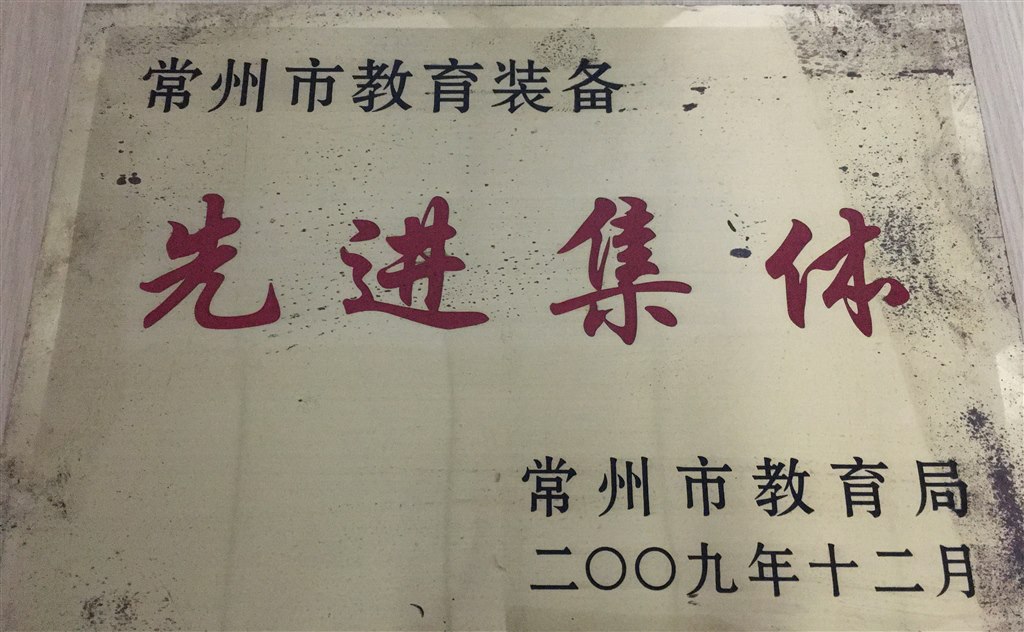 常州市教育装备
先进集体
常州市教育局
二〇〇九年十二月